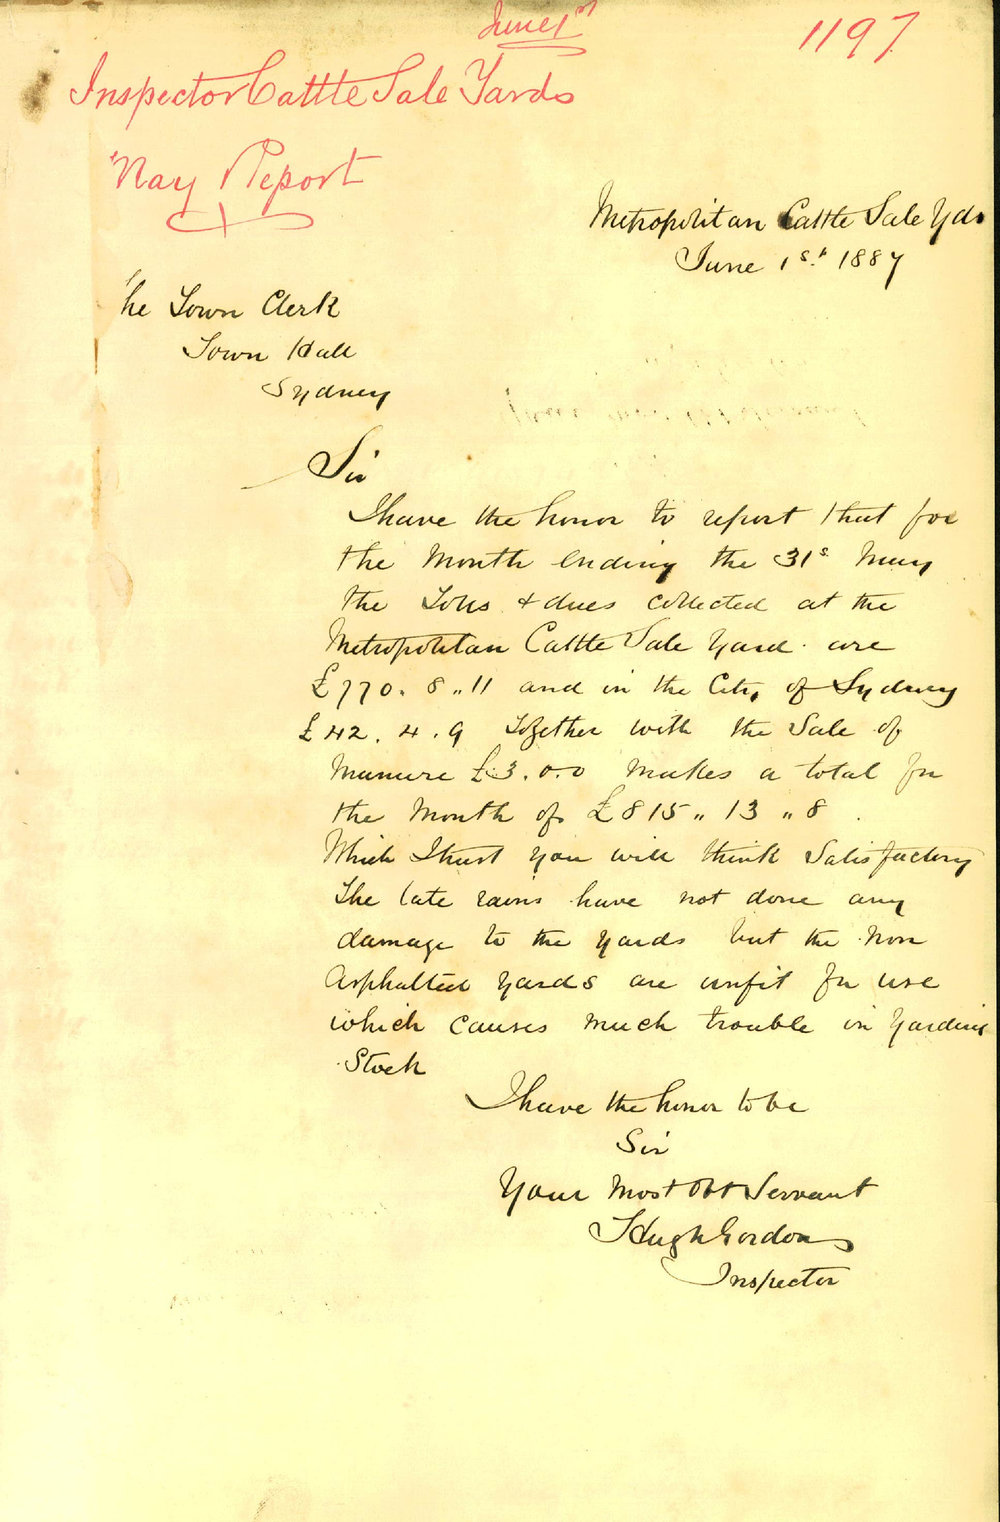 June 1st
1197
Inspector Cattle Sale Yards
May Report
Metropolitan Cattle Sale Yds
June 1st 1887
The Town Clerk
Town Hall
Sydney
Sir
I have the honor to report that for
the Month ending the 31s May
the Tolls & dues collected at the
Metropolitan Cattle Sale Yard are
£770. 8 .. 11 and in the City of Sydney
£42. 4. 9 Together with the Sale of
Manure £3.0.0 makes a total for
the Month of £815 .. 13 .. 8
Which I trust you will think Satisfactory
The late rains have not done any
damage to the yards but the non
Asphalted yards are unfit for use
which causes much trouble in Yarding
Stock
I have the honor to be
Sir
Your Most Obt Servant
Hugh Gordon
Inspector